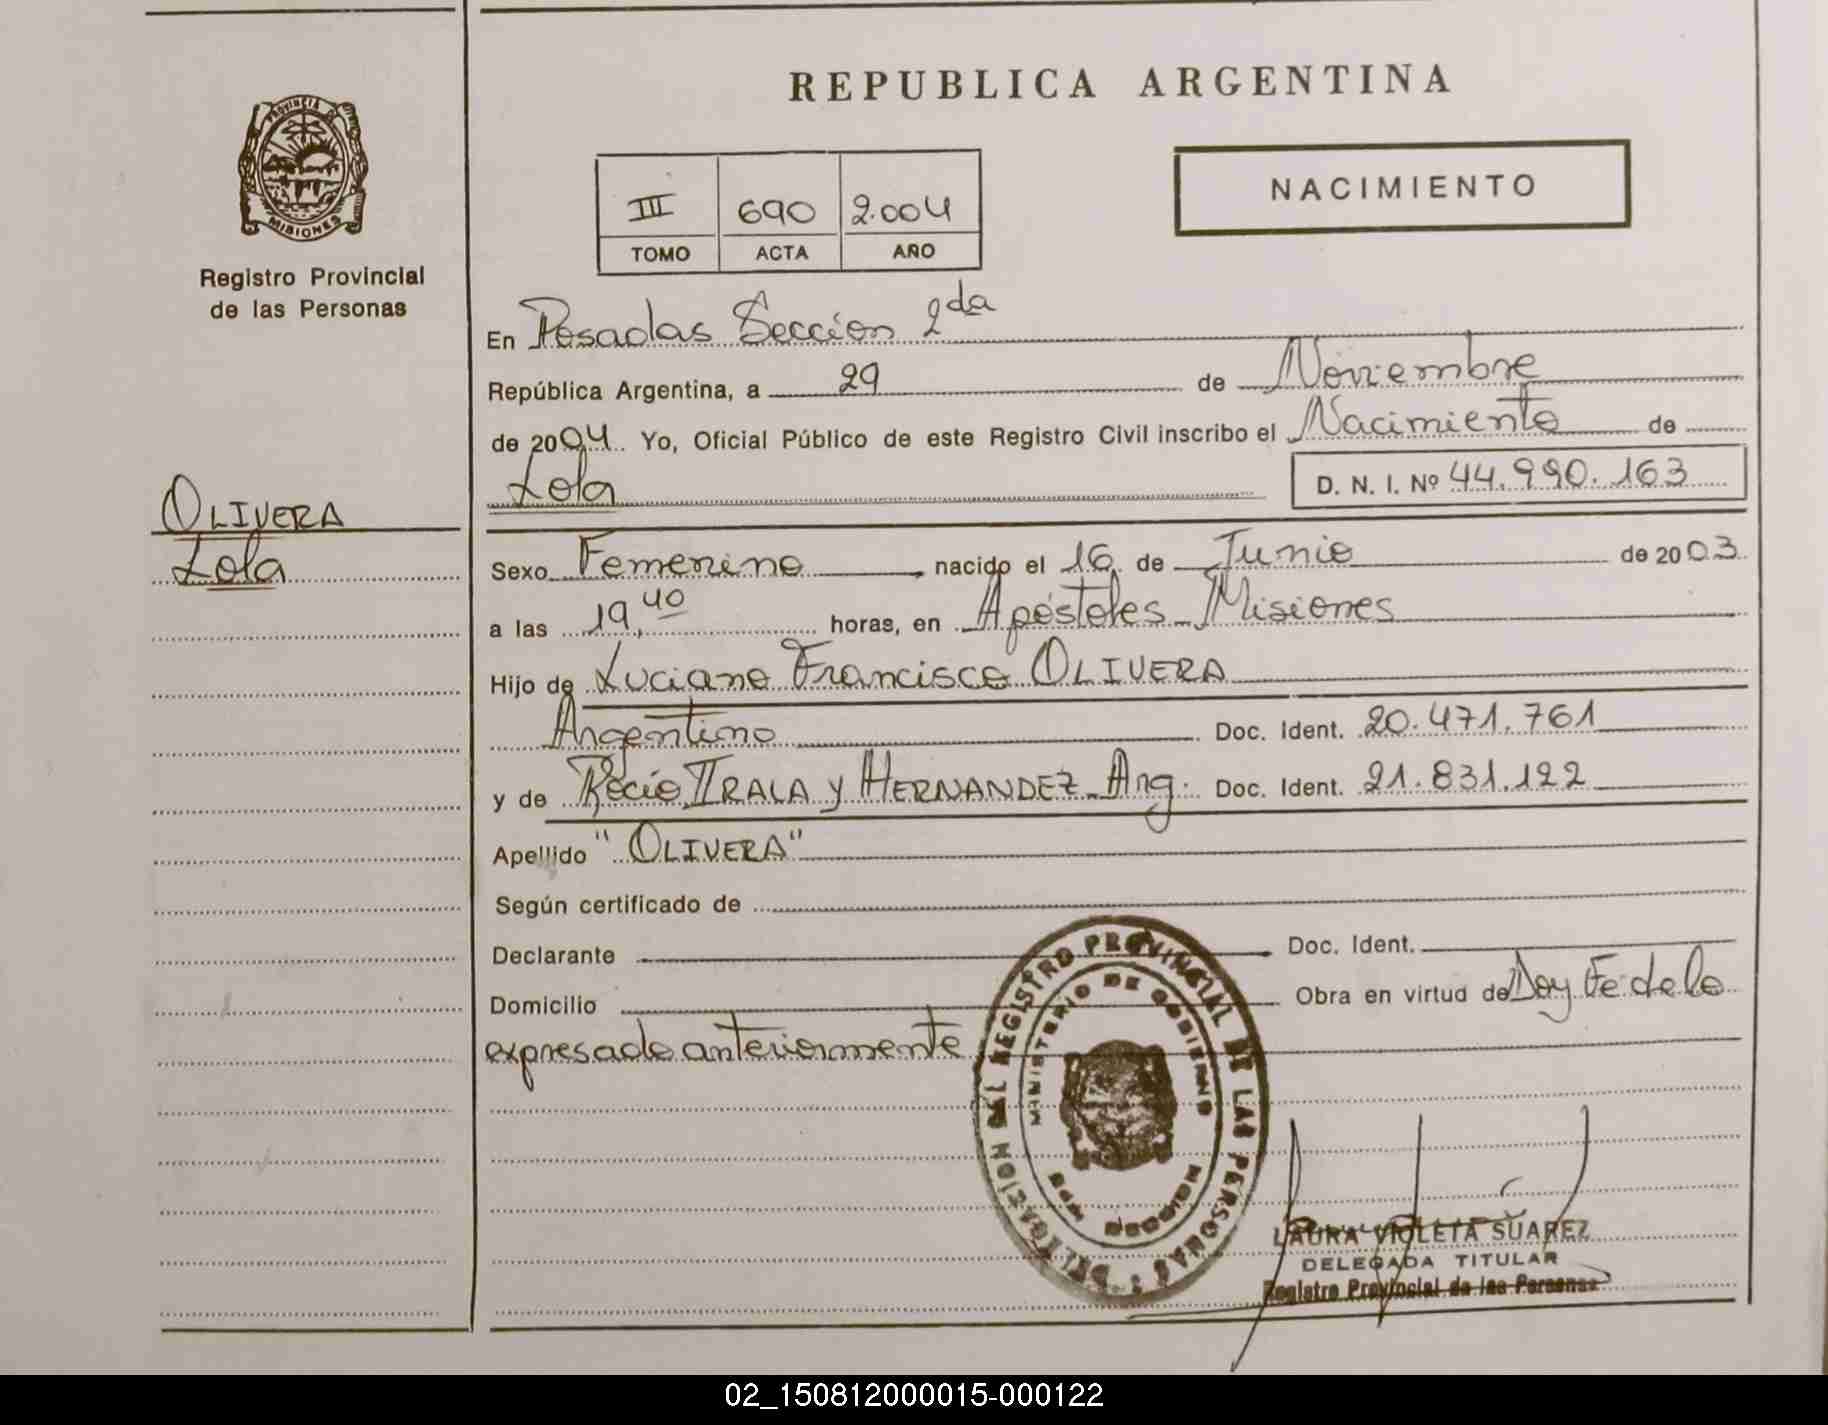 REPUBLICA ARGENTINA
PROVINCIA DE
MISIONES
Registro Provincial
de las Personas
III 690 2.004
TOMO ACTA AÑO
NACIMIENTO
En Posadas Sección 2da
República Argentina, a 29 de Noviembre
de 2004 Yo, Oficial Público de este Registro Civil inscribo el Nacimiento de
Lola D. N. I. Nº 44.990.163
OLIVERA
Lola
Sexo Femenino nacido el 16 de Junio de 2003
a las 19,40 horas, en Apóstoles Misiones
Hijo de Luciano Francisco OLIVERA
Argentino Doc. Ident. 20.471.761
y de Rocío IRALA y HERNANDEZ Arg. Doc. Ident. 21.831.122
Apellido "OLIVERA"
Según certificado de
Declarante Doc. Ident.
Domicilio Obra en virtud de Doy Fe de lo
expresado anteriormente
REGISTRO PROVINCIAL DE LAS PERSONAS
MINISTERIO DE GOBIERNO
LAURA VIOLETA SUAREZ
DELEGADA TITULAR
Registro Provincial de las Personas
02_150812000015-000122